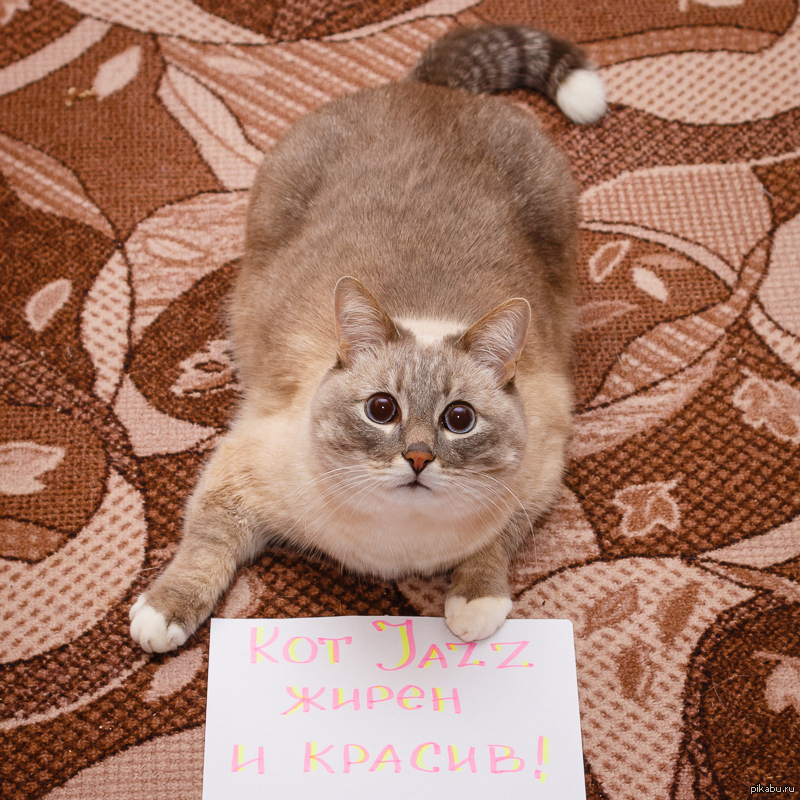 Кот Jazz
жирен
и красив!
pikabu.ru